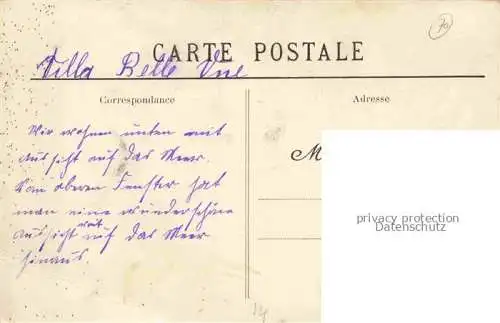 70
Villa Belle Vue
CARTE POSTALE
Correspondance
Adresse
Wir wohnen unten mit
Aussicht auf das Meer.
Vom oberen Fenster hat
man eine wunderschöne
Aussicht weit auf das Meer
hinaus.
M
privacy protection
Datenschutz